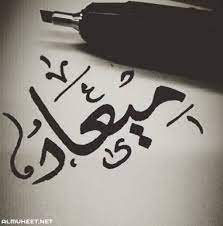 ميعاد
ALMUHEET.NET